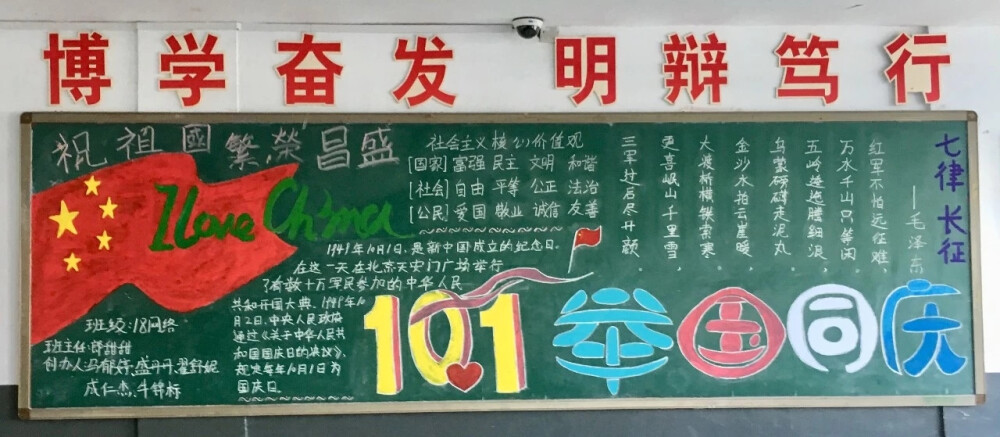 博学奋发 明辩笃行
祝祖國繁榮昌盛
I love China
社会主义核心价值观
[国家] 富强 民主 文明 和谐
[社会] 自由 平等 公正 法治
[公民] 爱国 敬业 诚信 友善
1941年10月1日,是新中国成立的纪念日.
在这一天在北京天安门广场举行
了有数十万军民参加的中华人民
共和开国大典.1981年10
月2日,中央人民政府
通过《关于中华人民共
和国国庆日的决议》,
起决每年10月1日为
国庆日.
班级:18网络
班主任:甜甜
创办人:冯郁婷.盛丹丹.翟舒妮
成仁杰.牛锦标
101
举国同庆
七律 长征
——毛泽东
红军不怕远征难,
万水千山只等闲
五岭逶迤腾细浪
乌蒙磅礴走泥丸
金沙水拍云崖暖,
大渡桥横铁索寒
更喜岷山千里雪,
三军过后尽开颜